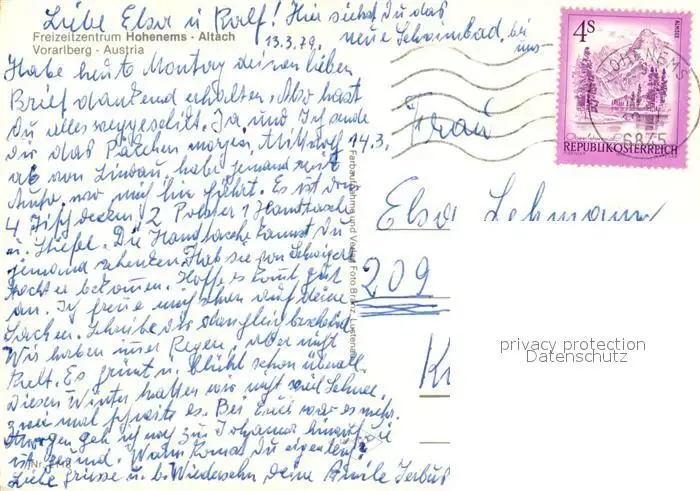 Liebe Elsa u Ralf! Hir siehst Du das
Freizeitzentrum Hohenems - Altach
Vorarlberg - Austria
13.3.79.
neue Schwimbad, bei
uns
Habe heute Montag deinen lieben
Brief dankend erhalten. Also hast
Du alles weggeschikt. Ja und Ich sende
dir das Päkchen morgen, Mittwoch 14.3.
ab von Lindau. habe jemand mit
Auto, wo mich hin fährt. Es ist drin
4 Tischdecken, 2 Polster 1 Handtasche
u. Stiefel. Die Handtasche kannst Du
jemand schenken. Hab sie von Schwiger
tochter bekommen. Hoffe es komt gut
an. Ich freue mich schon auf deine
Sachen. Schreibe dir dan gleich bescheid.
Wir haben imer Regen, aber nicht
Kalt. Es grünt u. blüht schon überall.
Diesen Winter hatten wir nicht viel Schnee,
zwei mal schneite es. Bei Euch war es mehr.
Morgen geh ich noch zu Johanna hinauf, sie
ist gesund. Wann komst Du eigentlich?
Liebe Grüsse u. b. Wiedersehn deine
Farbaufnahme und Verlag Foto Branz, Lustenau
4S
ALMSEE
REPUBLIK ÖSTERREICH
HOHENEMS
6845
Frau
Elsa Lehmann
209
K
privacy protection
Datenschutz